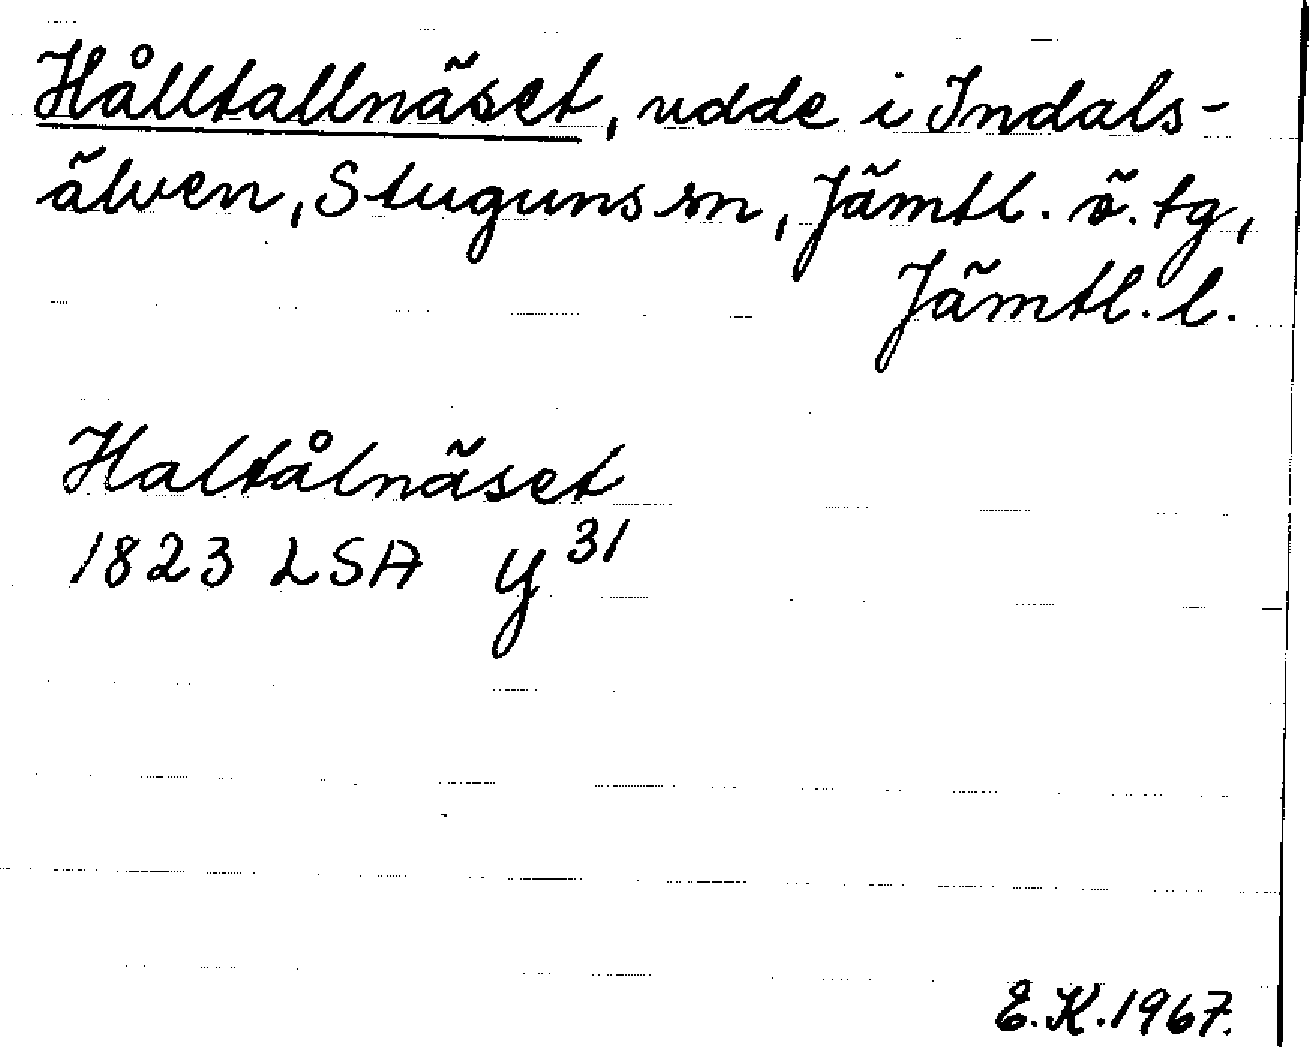 Hålltallnäset, udde i Indals-
älven, Stuguns sn, Jämtl. ö. tg,
Jämtl. l.
Haltålnäset
1823 LSA y³¹
E.K. 1967.